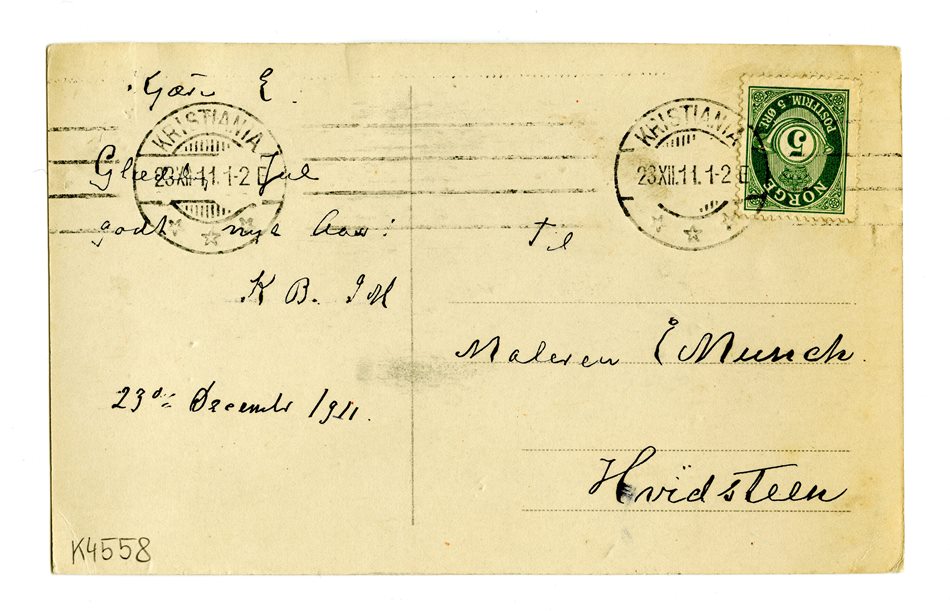 Kjære E.
Glædelig Jul
godt nyt Aar!
K B. I M
23de December 1911.
K4558
KRISTIANIA
23XII.11.1-2 E
KRISTIANIA
23XII.11.1-2 E
NORGE
POSTFRIM. 5 ØRE
5
Til
Maleren E Munch.
Hvidsteen